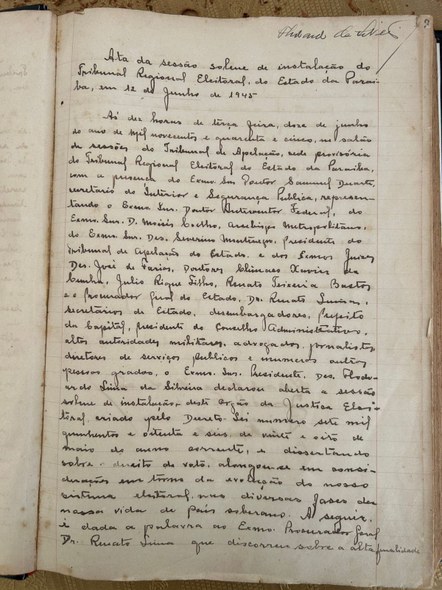 Ata da sessão solene de instalação do
Tribunal Regional Eleitoral, do Estado da Parai-
ba, em 12 de Junho de 1945
Ás dez horas de terça feira, doze de junho
do ano de mil novecentos e quarenta e cinco, no salão
de sessões do Tribunal de Apelação, sede provisória
do Tribunal Regional Eleitoral do Estado da Paraiba,
com a presença do Exmo. Snr. Doutor Samuel Duarte,
secretario do Interior e Segurança Publica, represen-
tando o Exmo Snr. Doutor Interventor Federal, do
Exmo. Snr. D. Moisés Coêlho, Arcebispo Metropolitano,
do Exmo. Snr. Des. Severino Montenegro, presidente do
Tribunal de Apelação do Estado, e dos Juizes
Des. José de Farias, Doutores Climaco Xavier da
Cunha, Julio Rique Filho, Renato Teixeira Bastos
e o Procurador Geral do Estado, Dr. Renato Lima,
secretários de Estado, desembargadores, prefeito
da Capital, presidente do Conselho Administrativo,
altas autoridades militares, advogados, jornalistas,
diretores de serviços publicos e inumeras outras
pessoas gradas, o Exmo. Snr. Presidente, Des. Flodo-
ardo Lima da Silveira declarou aberta a sessão
solene de instalação deste orgão da Justiça Elei-
toral, criado pelo Decreto-Lei numero sete mil
quinhentos e oitenta e seis, de vinte e oito de
maio do ano corrente, e dissertando
sobre o direito de voto, alongou-se em consi-
derações em torno da evolução do nosso
sistema eleitoral, nas diversas fases da
nossa vida de país soberano. A seguir,
é dada a palavra ao Exmo. Procurador Geral
Dr. Renato Lima que discorreu sobre a alta finalidade